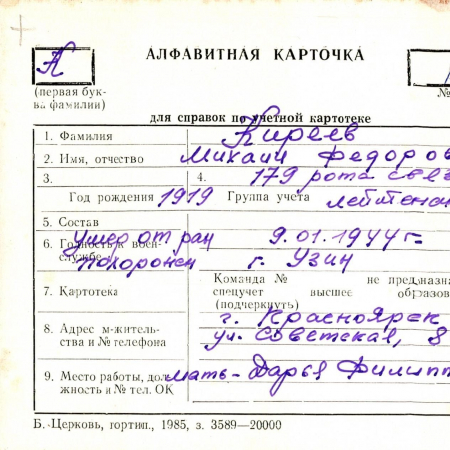 АЛФАВИТНАЯ КАРТОЧКА
К
(первая бук-
ва фамилии)
№
для справок по учетной картотеке
1. Фамилия Киреев
2. Имя, отчество Михаил Федоров
3. 4. 179 рота связ
Год рождения 1919 Группа учета лейтенан
5. Состав
6. Годность к воен-
службе
Умер от ран 9.01.1944 г.
похоронен г. Узин
7. Картотека
Команда № не предназна
спецучет высшее образов
(подчеркнуть)
8. Адрес м-житель-
ства и № телефона
г. Красноярск
ул. Советская, 8
9. Место работы, дол
жность и № тел. ОК
мать - Дарья Филипп
Б.-Церковь, гортип., 1985, з. 3589—20000